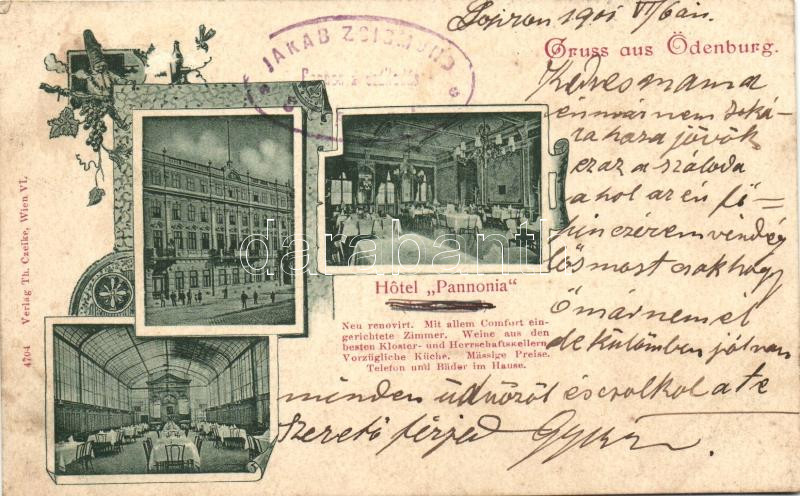 Sopron 1901 VI/6án
JAKAB ZSIGMOND
Gruss aus Ödenburg.
Kedves mama
én már nem soká
ra haza jövök
ez az a szálloda
a hol az én fő
vendég
lős most csak hogy
Ő már nem él
de külömben jól van
minden üdvözöl és csolkol a te
szerető férjed
Hôtel „Pannonia“
Neu renovirt. Mit allem Comfort ein-
gerichtete Zimmer. Weine aus den
besten Kloster- und Herrschaftskellern.
Vorzügliche Küche. Mässige Preise.
Telefon und Bäder im Hause.
4704 Verlag Th. Czeike, Wien VI.
darabanth